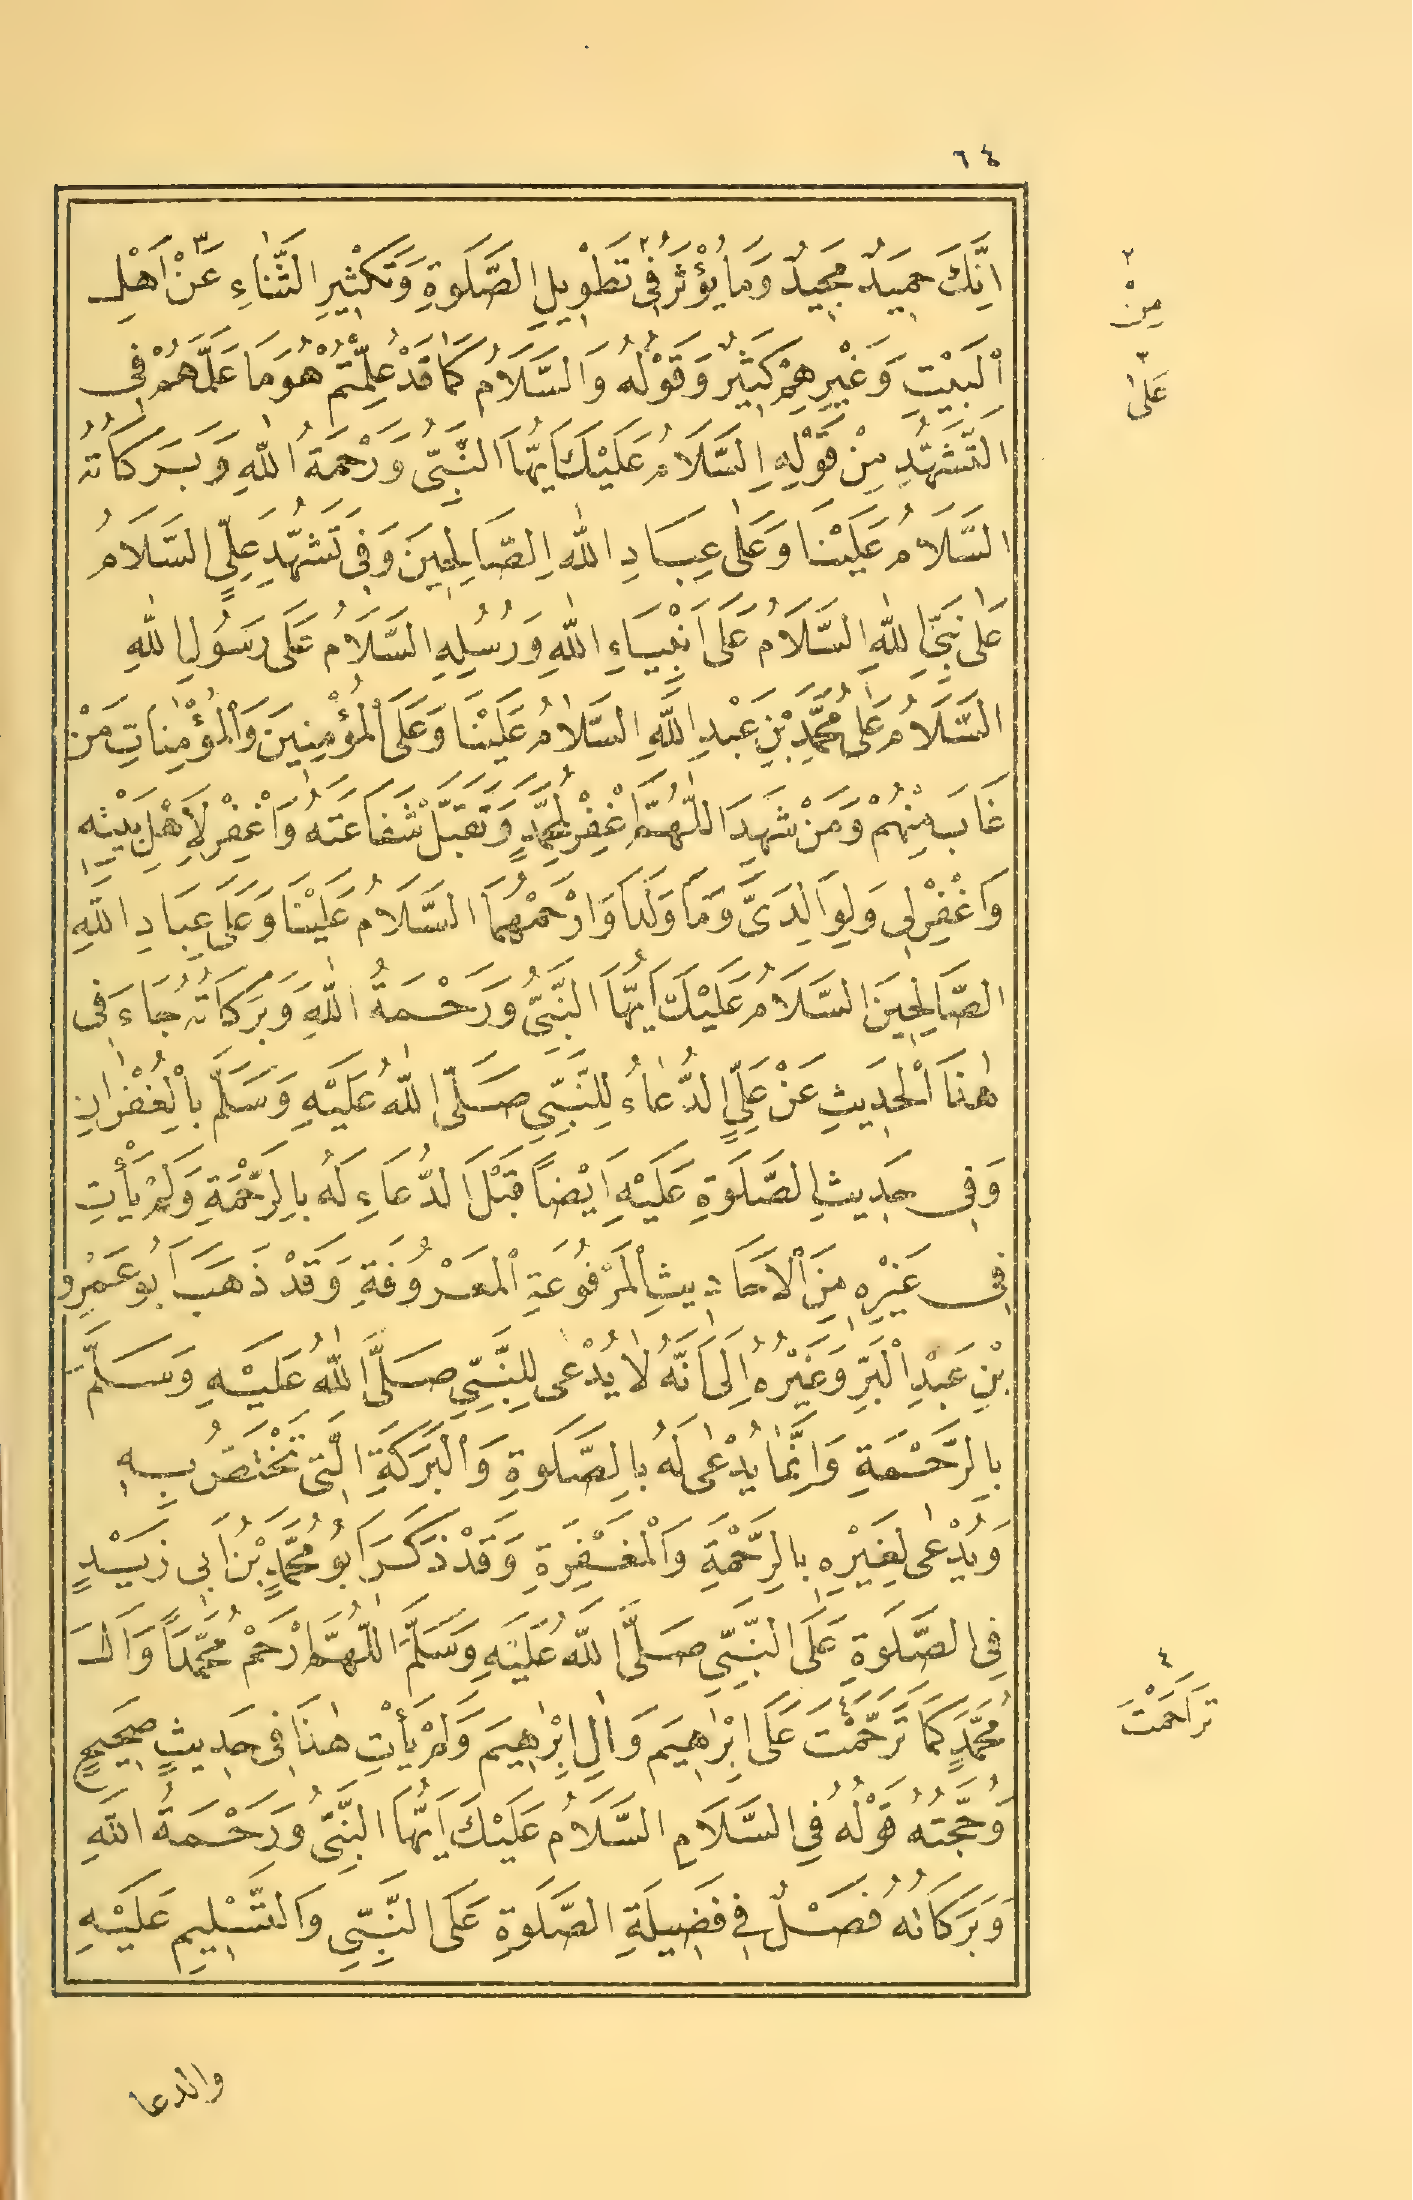 ٦٤
اِنَّكَ حَمِيدٌ مَجِيدٌ وَمَا يُؤْثَرُ فِى٢ تَطْوِيلِ الصَّلَوةِ وَتَكْثِيرِ الثَّنَاءِ عَنْ٣ اَهْلِ
اَلْبَيْتِ وَغَيْرِهِمْ كَثِيرٌ وَقَوْلُهُ وَالسَّلَامُ كَمَا قَدْ عُلِّمْتُمْ هُوَ مَا عَلَّمَهُمْ فِى
التَّشَهُّدِ مِنْ قَوْلِهِ اِلسَّلَامُ عَلَيْكَ اَيُّهَا النَّبِىُّ وَرَحْمَةُ اللهِ وَبَرَكَاتُهُ
السَّلَامُ عَلَيْنَا وَعَلٰى عِبَادِ اللهِ الصَّالِحِينَ وَفِى تَشَهُّدِ عَلِىٍّ السَّلَامُ
عَلٰى نَبِىِّ اللهِ السَّلَامُ عَلَى اَنْبِيَاءِ اللهِ وَرُسُلِهِ السَّلَامُ عَلَى رَسُولِ اللهِ
السَّلَامُ عَلٰى مُحَمَّدِ بْنِ عَبْدِ اللهِ السَّلَامُ عَلَيْنَا وَعَلَى الْمُؤْمِنِينَ وَالْمُؤْمِنَاتِ مَنْ
غَابَ مِنْهُمْ وَمَنْ شَهِدَ اَللّٰهُمَّ اغْفِرْ لِمُحَمَّدٍ وَتَقَبَّلْ شَفَاعَتَهُ وَاغْفِرْ لِاَهْلِ بَيْتِهِ
وَاغْفِرْ لِى وَلِوَالِدَىَّ وَمَا وَلَدَا وَارْحَمْهُمَا السَّلَامُ عَلَيْنَا وَعَلَى عِبَادِ اللهِ
الصَّالِحِينَ السَّلَامُ عَلَيْكَ اَيُّهَا النَّبِىُّ وَرَحْمَةُ اللهِ وَبَرَكَاتُهُ جَاءَ فِى
هٰذَا الْحَدِيثِ عَنْ عَلِىٍّ الدُّعَاءُ لِلنَّبِىِّ صَلَّى اللهُ عَلَيْهِ وَسَلَّمَ بِالْغُفْرَانِ
وَفِى حَدِيثِ الصَّلَوةِ عَلَيْهِ اَيْضًا قَبْلَ الدُّعَاءِ لَهُ بِالرَّحْمَةِ وَلَمْ يَأْتِ
فِى غَيْرِهِ مِنَ الْاَحَادِيثِ الْمَرْفُوعَةِ الْمَعْرُوفَةِ وَقَدْ ذَهَبَ اَبُو عَمْرِو
بْنِ عَبْدِ الْبَرِّ وَغَيْرُهُ اِلَى اَنَّهُ لَا يُدْعٰى لِلنَّبِىِّ صَلَّى اللهُ عَلَيْهِ وَسَلَّمَ
بِالرَّحْمَةِ وَاِنَّمَا يُدْعٰى لَهُ بِالصَّلَوةِ وَالْبَرَكَةِ الَّتِى تَخْتَصُّ بِهِ
وَيُدْعٰى لِغَيْرِهِ بِالرَّحْمَةِ وَالْمَغْفِرَةِ وَقَدْ ذَكَرَ اَبُو مُحَمَّدِ بْنُ اَبِى زَيْدٍ
فِى الصَّلَوةِ عَلَى النَّبِىِّ صَلَّى اللهُ عَلَيْهِ وَسَلَّمَ اَللّٰهُمَّ ارْحَمْ مُحَمَّدًا وَاٰلَ
مُحَمَّدٍ كَمَا تَرَحَّمْتَ٤ عَلَى اِبْرٰهِيمَ وَاٰلِ اِبْرٰهِيمَ وَلَمْ يَأْتِ هٰذَا فِى حَدِيثٍ صَحِيحٍ
وَحُجَّتُهُ قَوْلُهُ فِى السَّلَامِ السَّلَامُ عَلَيْكَ اَيُّهَا النَّبِىُّ وَرَحْمَةُ اللهِ
وَبَرَكَاتُهُ فَصْلٌ فِى فَضِيلَةِ الصَّلَوةِ عَلَى النَّبِىِّ وَالتَّسْلِيمِ عَلَيْهِ
٢
مِنْ
٣
عَلٰى
٤
تَرَاحَمْتَ
والدعا